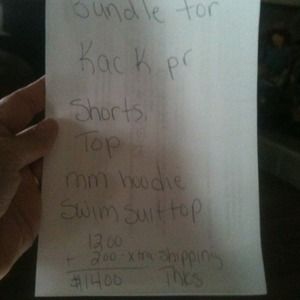 Bundle for
Kack pr
Shorts.
Top
mm hoodie
Swim suit top
1200
+ 200 - xtra shipping
$1400 Thks